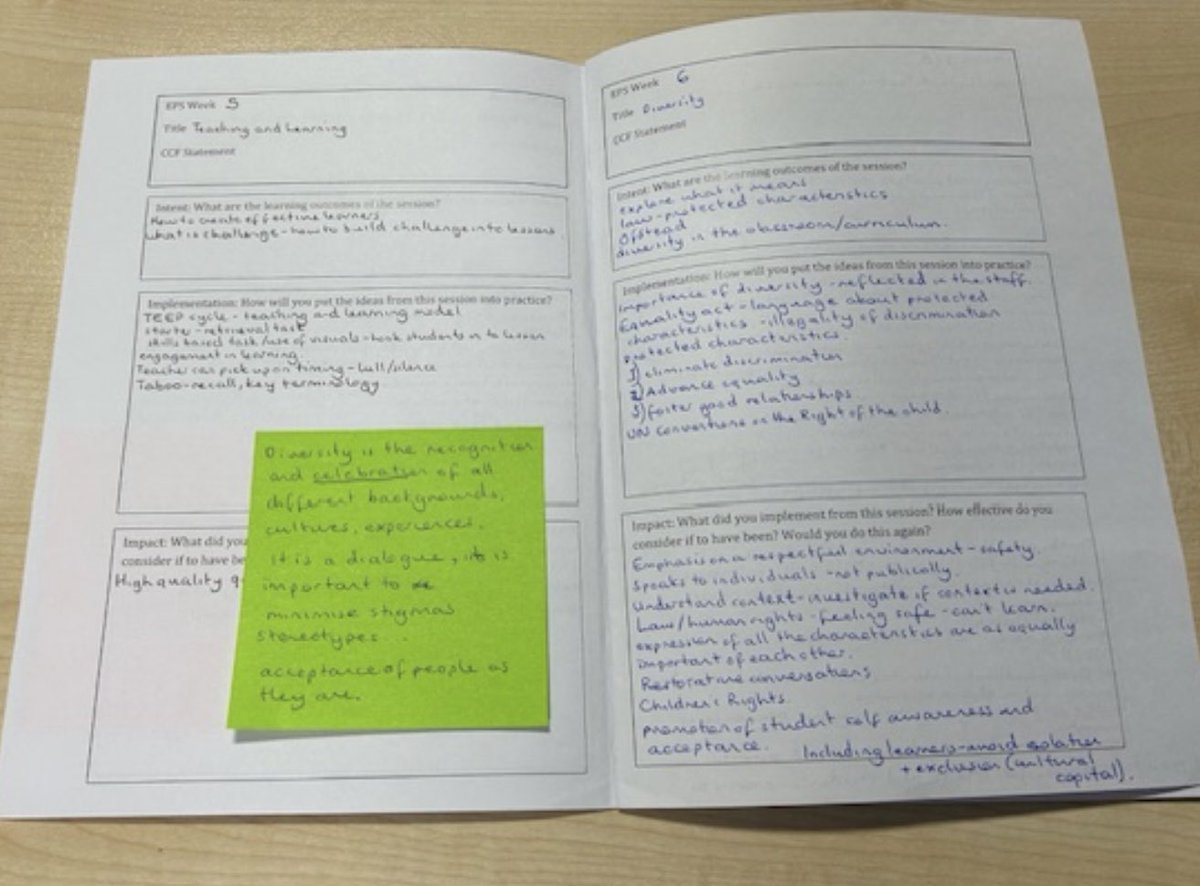 EPS Week 5
Title Teaching and Learning
CCF Statement
Intent: What are the learning outcomes of the session?
How to create effective learners
What is challenge - how to build challenge into lessons.
Implementation: How will you put the ideas from this session into practice?
TEEP cycle - teaching and learning model
starter - retrieval task
skills based task/use of visuals - hook students in to lesson
engagement in learning.
Teacher can pick up on timing - bell/silence
Taboo - recall, key terminology
Impact: What did you
consider if to have be
High quality q
Diversity is the recognition
and celebration of all
different backgrounds,
cultures, experiences.
It is a dialogue, it is
important to
minimise stigmas
stereotypes...
acceptance of people as
they are.
EPS Week 6
Title Diversity
CCF Statement
Intent: What are the learning outcomes of the session?
explore what it means
law - protected characteristics
Ofstead
diversity in the classroom/curriculum.
Implementation: How will you put the ideas from this session into practice?
Importance of diversity - reflected in the staff.
Equality act - language about protected
characteristics - illegality of discrimination
protected characteristics.
1) eliminate discrimination
2) Advance equality
3) foster good relationships.
UN Conventions on the Right of the child.
Impact: What did you implement from this session? How effective do you
consider if to have been? Would you do this again?
Emphasis on a respectful environment - safety.
Speaks to individuals - not publically.
Understand context - investigate if context is needed.
Law/human rights - feeling safe - can't learn.
expression of all the characteristics are as equally
important of each other.
Restorative conversations
Children's Rights
promotion of student self awareness and
acceptance.
Including learners - avoid isolation
+ exclusion (cultural
capital).